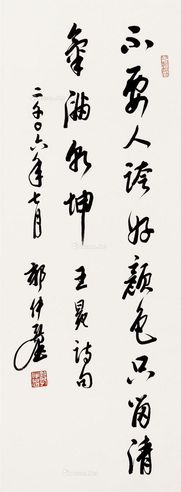 不要人誇好顏色只留清
氣滿乾坤
王冕詩句
二千〇六年七月
郝伊